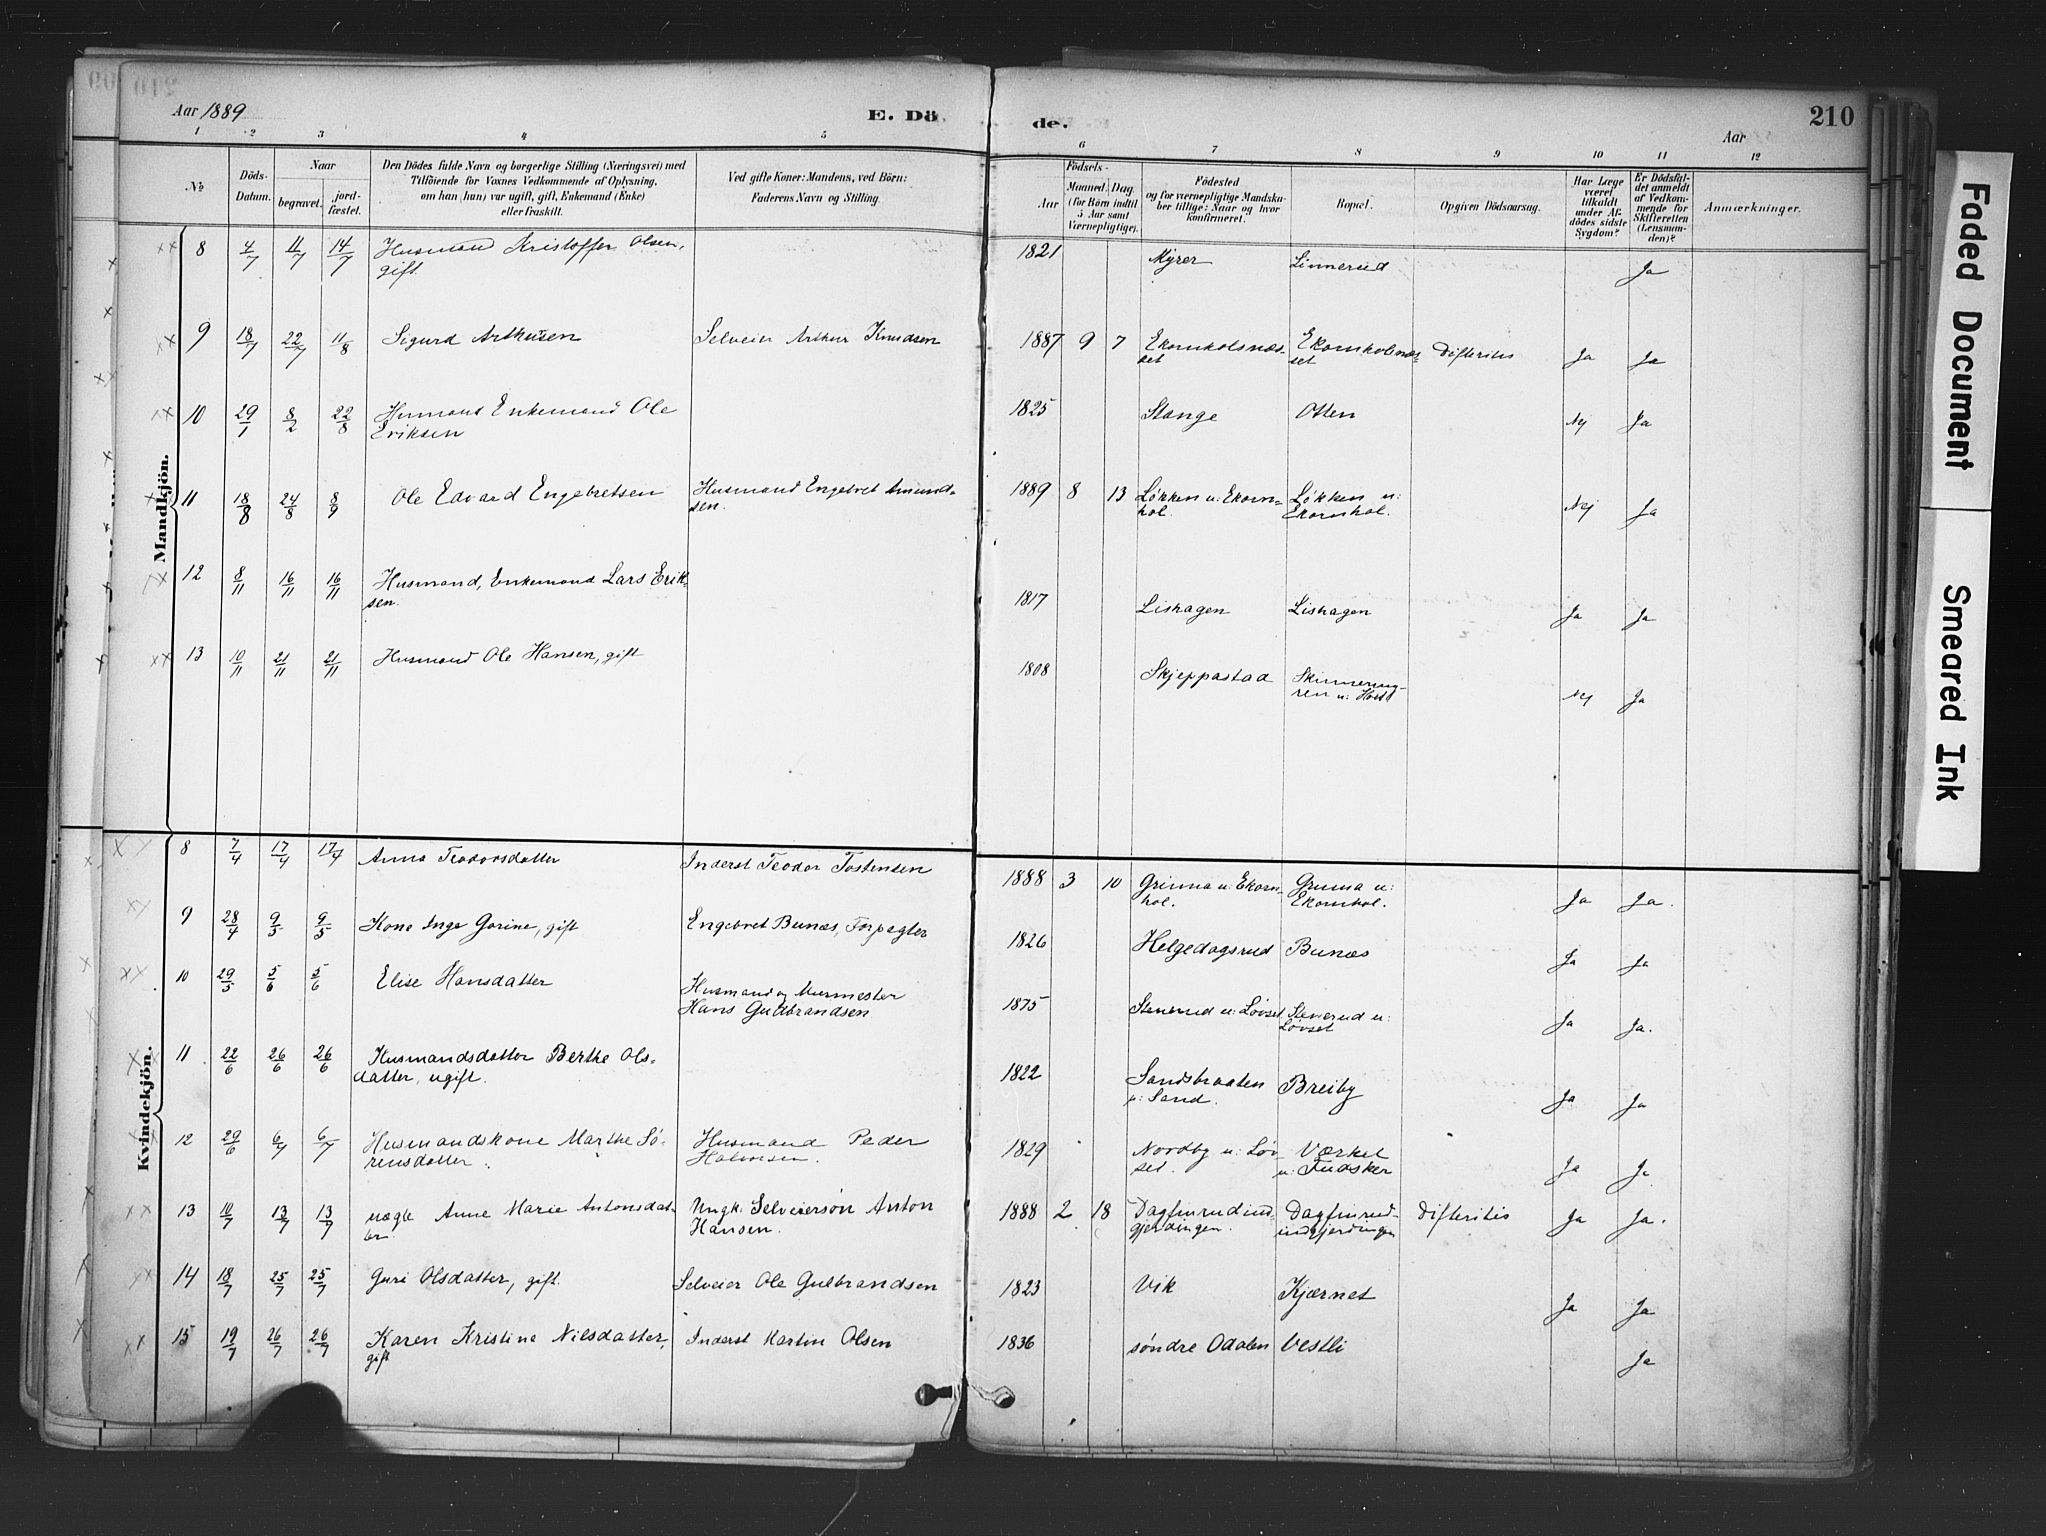 Aar 1889
E. Dö de.
Aar
210
1 2 3 4 5 6 7 8 9 10 11 12
№
Döds-Datum.
Naar
begravet.
jordfæstet.
Den Dödes fulde Navn og borgerlige Stilling (Næringsvei) med Tilföiende for Voxnes Vedkommende af Oplysning, om han (hun) var ugift, gift, Enkemand (Enke) eller fraskilt.
Ved gifte Koner: Mandens, ved Börn: Faderens Navn og Stilling.
Födsels-
Aar
Maaned. Dag
(for Börn indtil 5 Aar samt Værnepligtige).
Födested og for værnepligtige Mandskaber tillige: Naar og hvor konfirmeret.
Bopæl.
Opgiven Dödsaarsag.
Har Læge været tilkaldt under Afdødes sidste Sygdom?
Er Dödsfaldet anmeldt af Vedkommende for Skifteretten (Lensmanden)?
Anmærkninger.
Mandkjön.
8 4/7 11/7 14/7 Husmand Kristoffer Olsen, gift 1821 Myrer Linnerud Ja
9 18/7 22/7 11/8 Sigurd Arthursen Selveier Arthur Knudsen 1887 9 7 Ekornholsnæsset Ekornholnæsset Difteritis Ja Ja
10 29/1 8/2 22/8 Husmand Enkemand Ole Eriksen 1825 Stange Otten Nej Ja
11 18/8 24/8 8/9 Ole Edvard Engebretsen Husmand Engebret Amundsen. 1889 8 13 Løkken u: Ekornhol. Løkken u: Ekornhol. Nej Ja
12 8/11 16/11 16/11 Husmand, Enkemand Lars Eriksen. 1817 Lishagen Lishagen Ja Ja
13 10/11 21/11 21/11 Husmand Ole Hansen, gift 1808 Skjeppastad Nej Ja
Kvindekjön.
8 7/4 17/4 17/4 Anna Teodorsdatter Inderst Teodor Tostensen 1888 3 10 Grinna u: Ekornhol. Grinna u: Ekornhol. Ja Ja.
9 28/4 9/5 9/5 Kone Inge Gorine, gift Engebret Bunæs, Forpagter 1826 Helgedagsrud Bunæs Ja Ja
10 29/5 5/6 5/6 Elise Hansdatter Husmand og Murmester Hans Gulbrandsen 1875 Stenerud u: Løvset Stenerud u: Løvset Ja Ja.
11 22/6 26/6 26/6 Husmandsdatter Berthe Olsdatter, ugift. 1822 Sandsbraaten u: Sand. Breiby Ja Ja
12 29/6 6/7 6/7 Husmandskone Marthe Sørensdatter. Husmand Peder Halvorsen. 1829 Nordby u: Løvset. Værket u: Fudsker Ja Ja
13 10/7 13/7 13/7 uægte Anne Marie Antonsdatter. Ungk. Selveiersøn Anton Hansen. 1888 2 18 Dagfinrud indgjerdingen. Dagfinrudindgjerdingen Difteritis Ja Ja.
14 18/7 25/7 25/7 Guri Olsdatter, gift. Selveier Ole Gulbrandsen 1823 Vik Kjærnet Ja Ja
15 19/7 26/7 26/7 Karen Kristine Nilsdatter, gift Inderst Martin Olsen 1836 søndre Odalen Vestli Ja
Faded Document
Smeared Ink